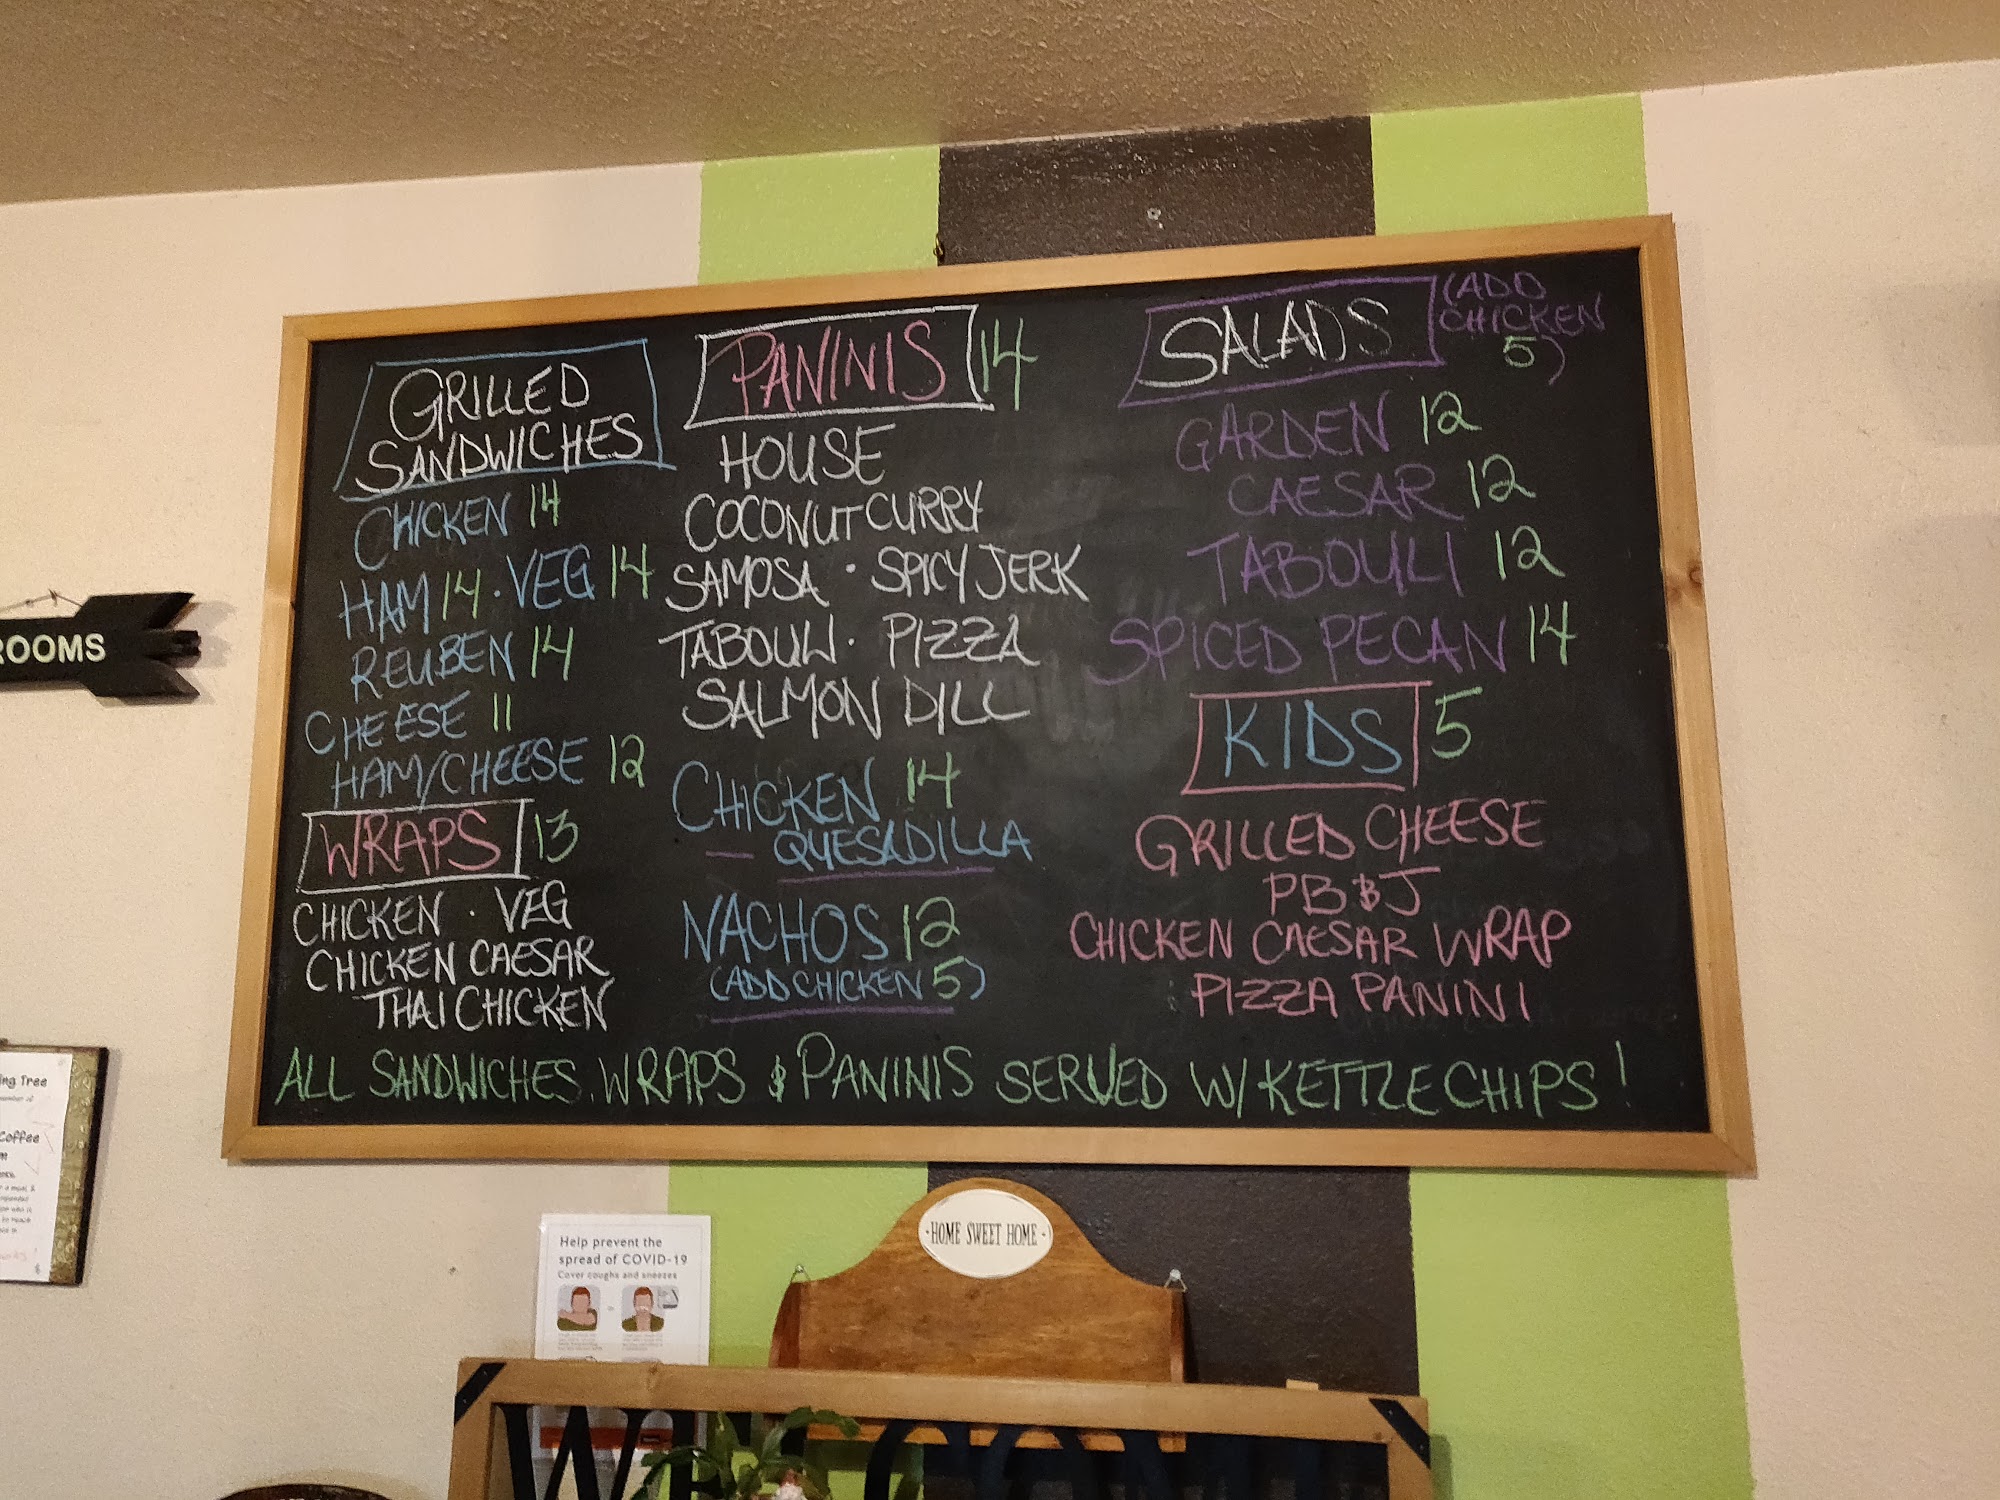 GRILLED
SANDWICHES
CHICKEN 14
HAM 14 · VEG 14
REUBEN 14
CHEESE 11
HAM/CHEESE 12
WRAPS 13
CHICKEN · VEG
CHICKEN CAESAR
THAI CHICKEN
PANINIS 14
HOUSE
COCONUT CURRY
SAMOSA · SPICY JERK
TABOULI · PIZZA
SALMON DILL
CHICKEN 14
QUESADILLA
NACHOS 12
(ADD CHICKEN 5)
SALADS
(ADD
CHICKEN
5)
GARDEN 12
CAESAR 12
TABOULI 12
SPICED PECAN 14
KIDS 5
GRILLED CHEESE
PB&J
CHICKEN CAESAR WRAP
PIZZA PANINI
ALL SANDWICHES, WRAPS & PANINIS SERVED W/ KETTLE CHIPS!
ROOMS
ing Tree
Coffee
Help prevent the
spread of COVID-19
Cover coughs and sneezes
·HOME SWEET HOME·
WELCOME